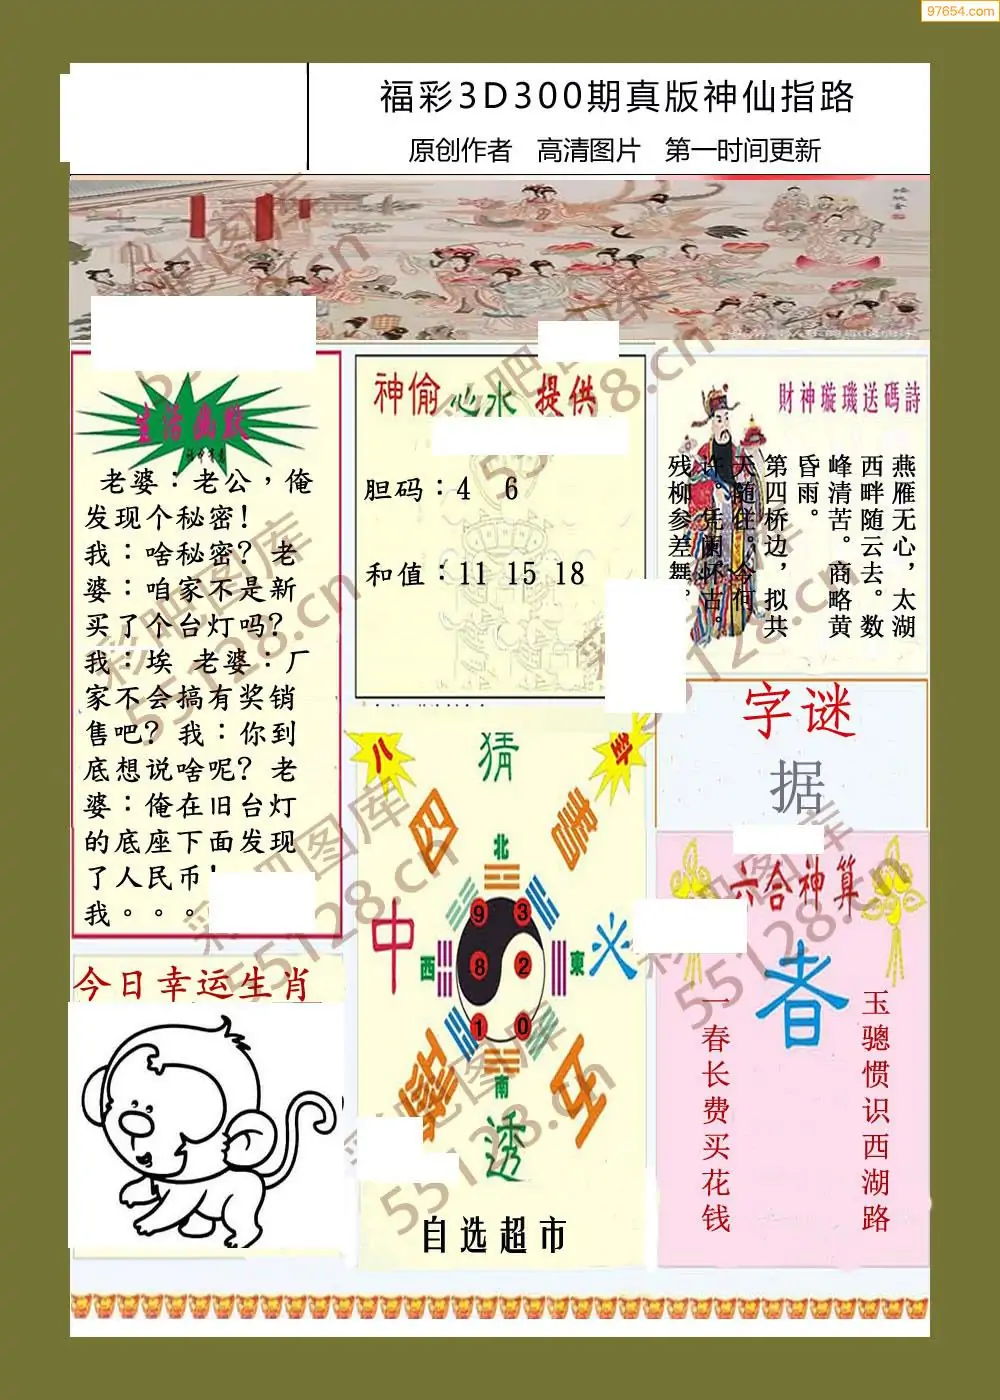 97654.com
福彩3D300期真版神仙指路
原创作者 高清图片 第一时间更新
生活幽默
老婆：老公，俺
发现个秘密！
我：啥秘密？老
婆：咱家不是新
买了个台灯吗？
我：埃 老婆：厂
家不会搞有奖销
售吧？我：你到
底想说啥呢？老
婆：俺在旧台灯
的底座下面发现
了人民币！
我。。。
今日幸运生肖
神偷 心水 提供
胆码：4 6
和值：11 15 18
財神璇璣送碼詩
燕雁无心，太湖
西畔随云去。数
峰清苦。商略黄
昏雨。
第四桥边，拟共
天随住。今何
许。凭阑怀古。
残柳参差舞。
字谜
据
八 猜 卦
北
9 3
中 西 8 2 東 火
1 0
南
透
自选超市
六合神算
春
玉骢惯识西湖路
一春长费买花钱
彩吧图库
55128.cn